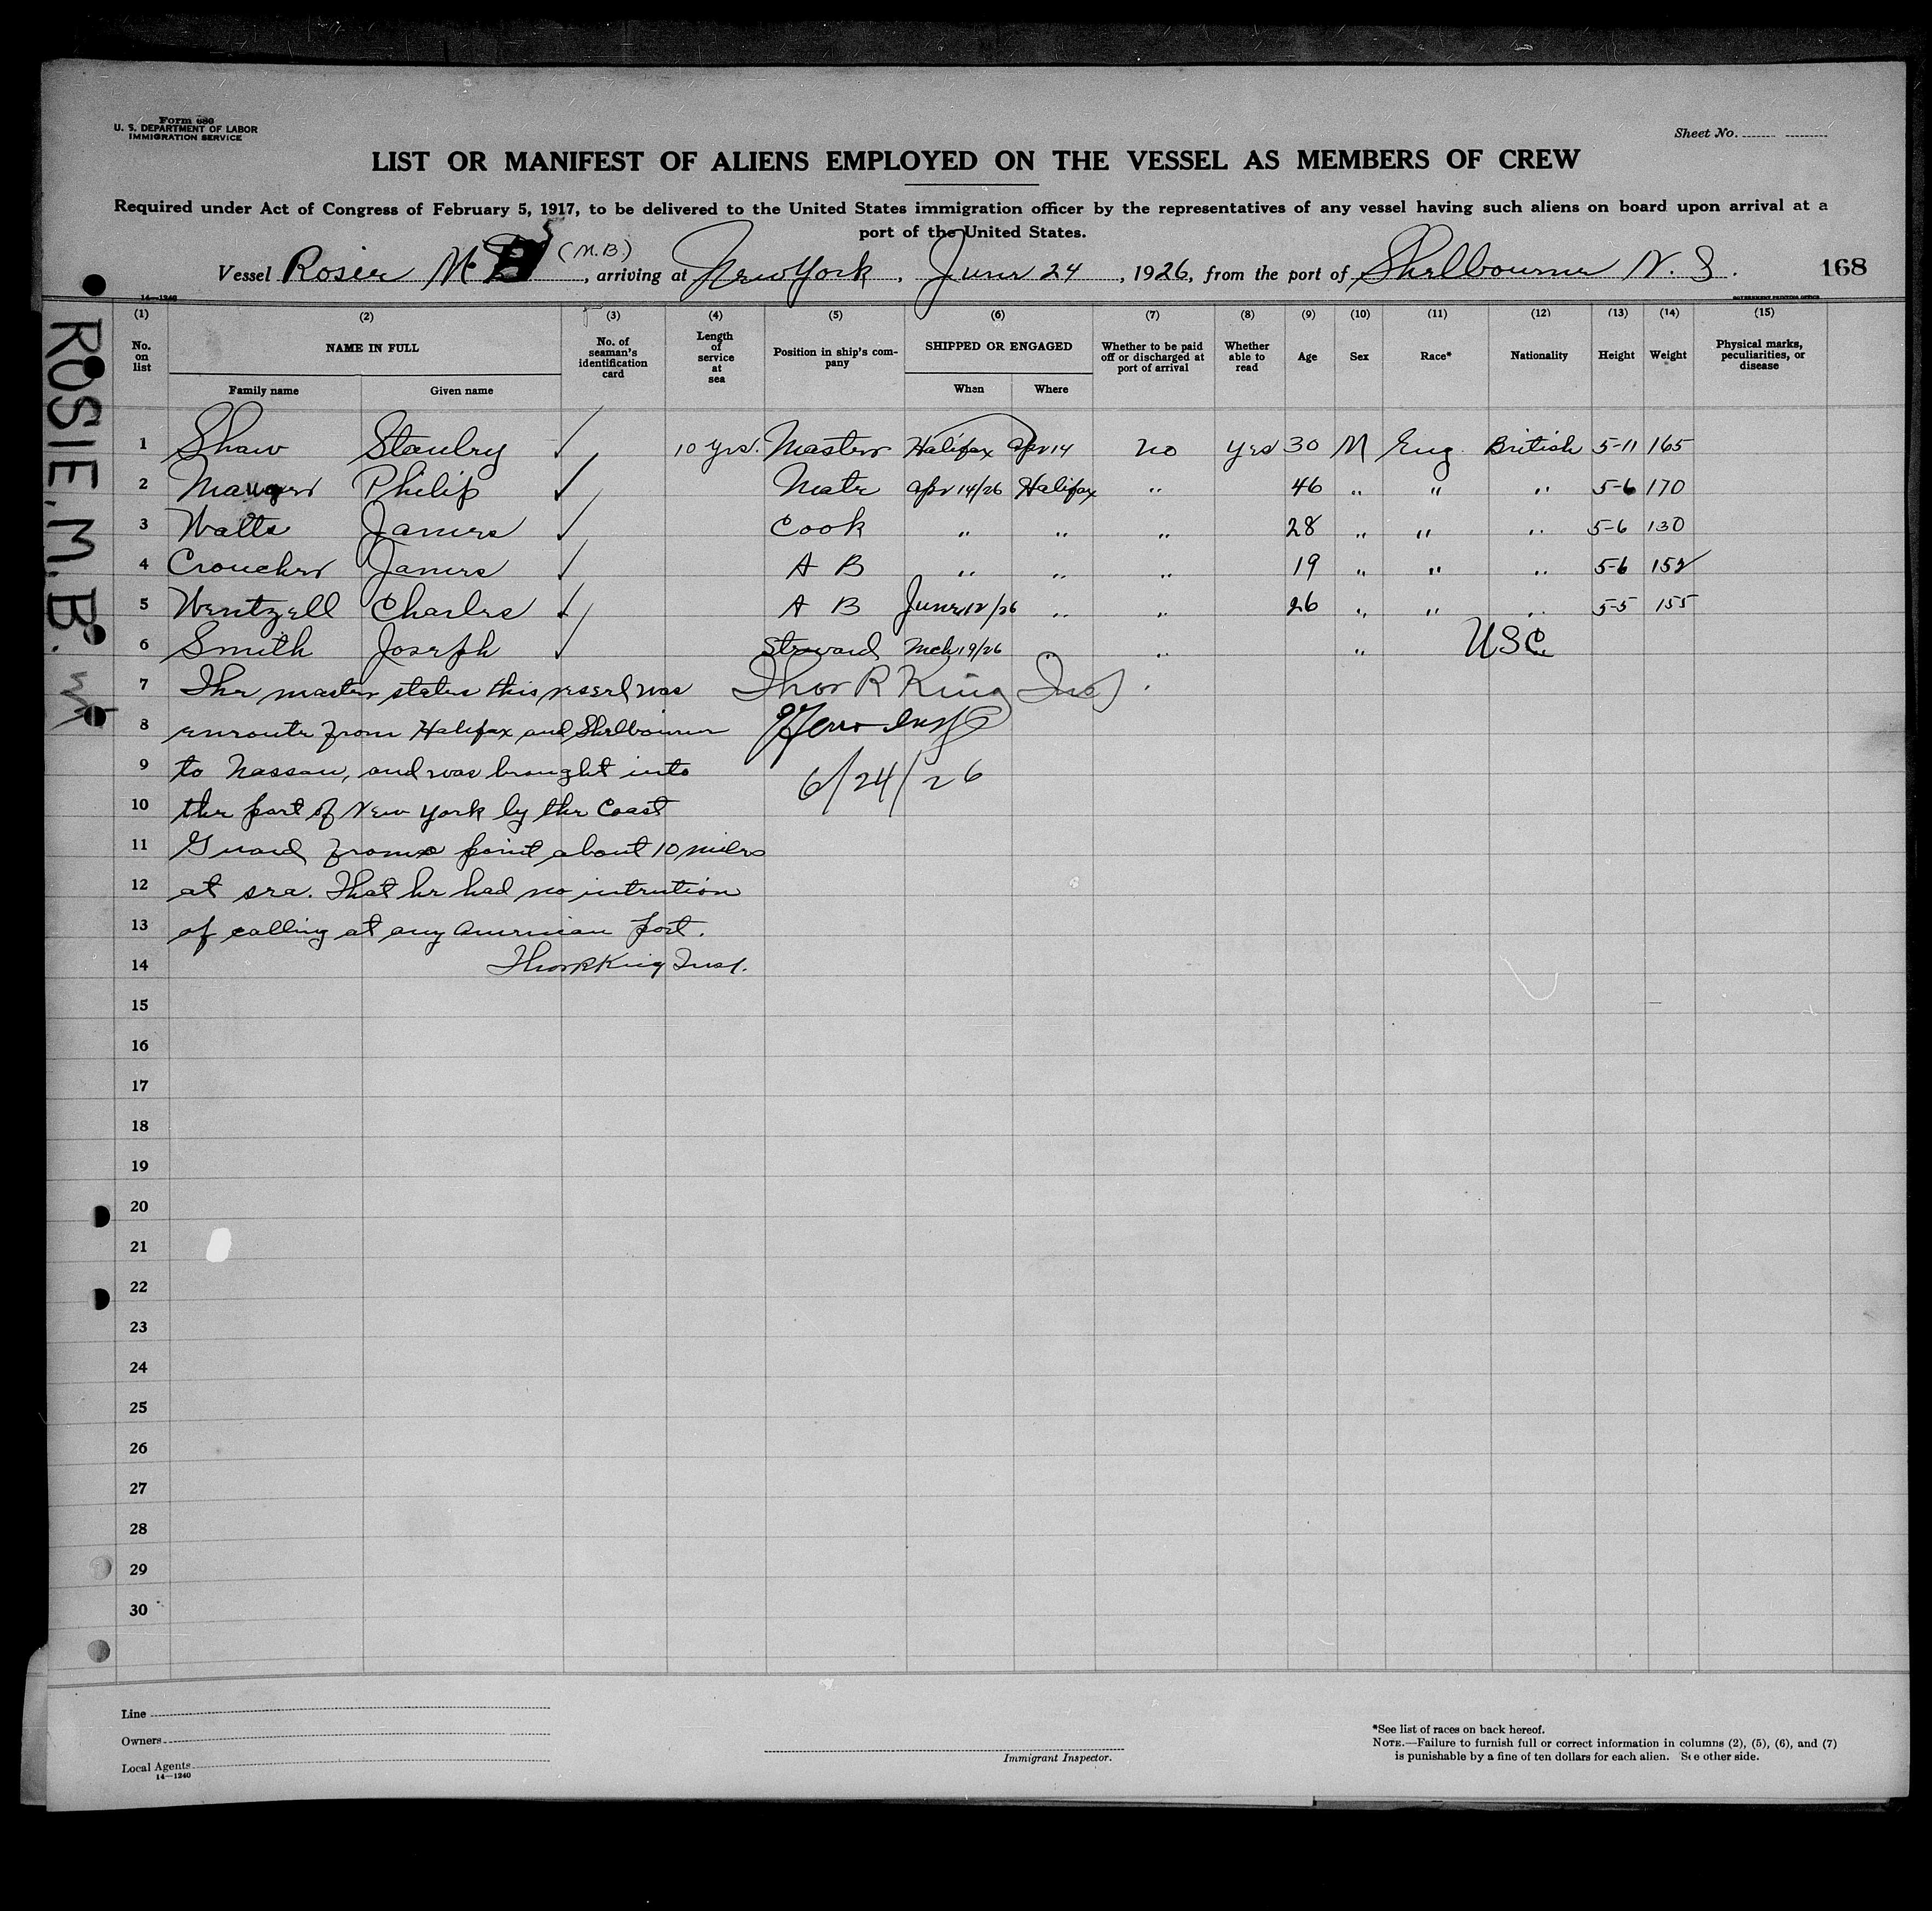 Form 686
U. S. DEPARTMENT OF LABOR
IMMIGRATION SERVICE
Sheet No.
LIST OR MANIFEST OF ALIENS EMPLOYED ON THE VESSEL AS MEMBERS OF CREW
Required under Act of Congress of February 5, 1917, to be delivered to the United States immigration officer by the representatives of any vessel having such aliens on board upon arrival at a
port of the United States.
(M.B.)
Vessel Rosie M B, arriving at New York, June 24, 1926, from the port of Shelbourne N. S. 168
14—1240 GOVERNMENT PRINTING OFFICE
ROSIE. M. B.
(1) (2) (3) (4) (5) (6) (7) (8) (9) (10) (11) (12) (13) (14) (15)
No. on list NAME IN FULL No. of seaman's identification card Length of service at sea Position in ship's company SHIPPED OR ENGAGED Whether to be paid off or discharged at port of arrival Whether able to read Age Sex Race* Nationality Height Weight Physical marks, peculiarities, or disease
Family name Given name When Where
1 Shaw Stanley ✓ 10 yrs. Master Halifax Apr 14 no yes 30 M Eng British 5-11 165
2 Mauger Philip ✓ Mate Apr 14/26 Halifax " 46 " " " 5-6 170
3 Watts James ✓ Cook " " " 28 " " " 5-6 130
4 Croucher James ✓ A B " " " 19 " " " 5-6 152
5 Wentzell Charles ✓ A B June 12/26 " " 26 " " " 5-5 155
6 Smith Joseph ✓ Steward Mch 19/26 " " " USC
7 The master states this vessel was Thor R King Insp.
8 enroute from Halifax and Shelbourne
9 to Nassau, and was brought into 6/24/26
10 the port of New York by the Coast
11 Guard from a point about 10 miles
12 at sea. That he had no intention
13 of calling at any American port.
14 Thor R King Insp.
15
16
17
18
19
20
21
22
23
24
25
26
27
28
29
30
Line
Owners
Local Agents
14—1240
Immigrant Inspector.
*See list of races on back hereof.
NOTE.—Failure to furnish full or correct information in columns (2), (5), (6), and (7)
is punishable by a fine of ten dollars for each alien. See other side.